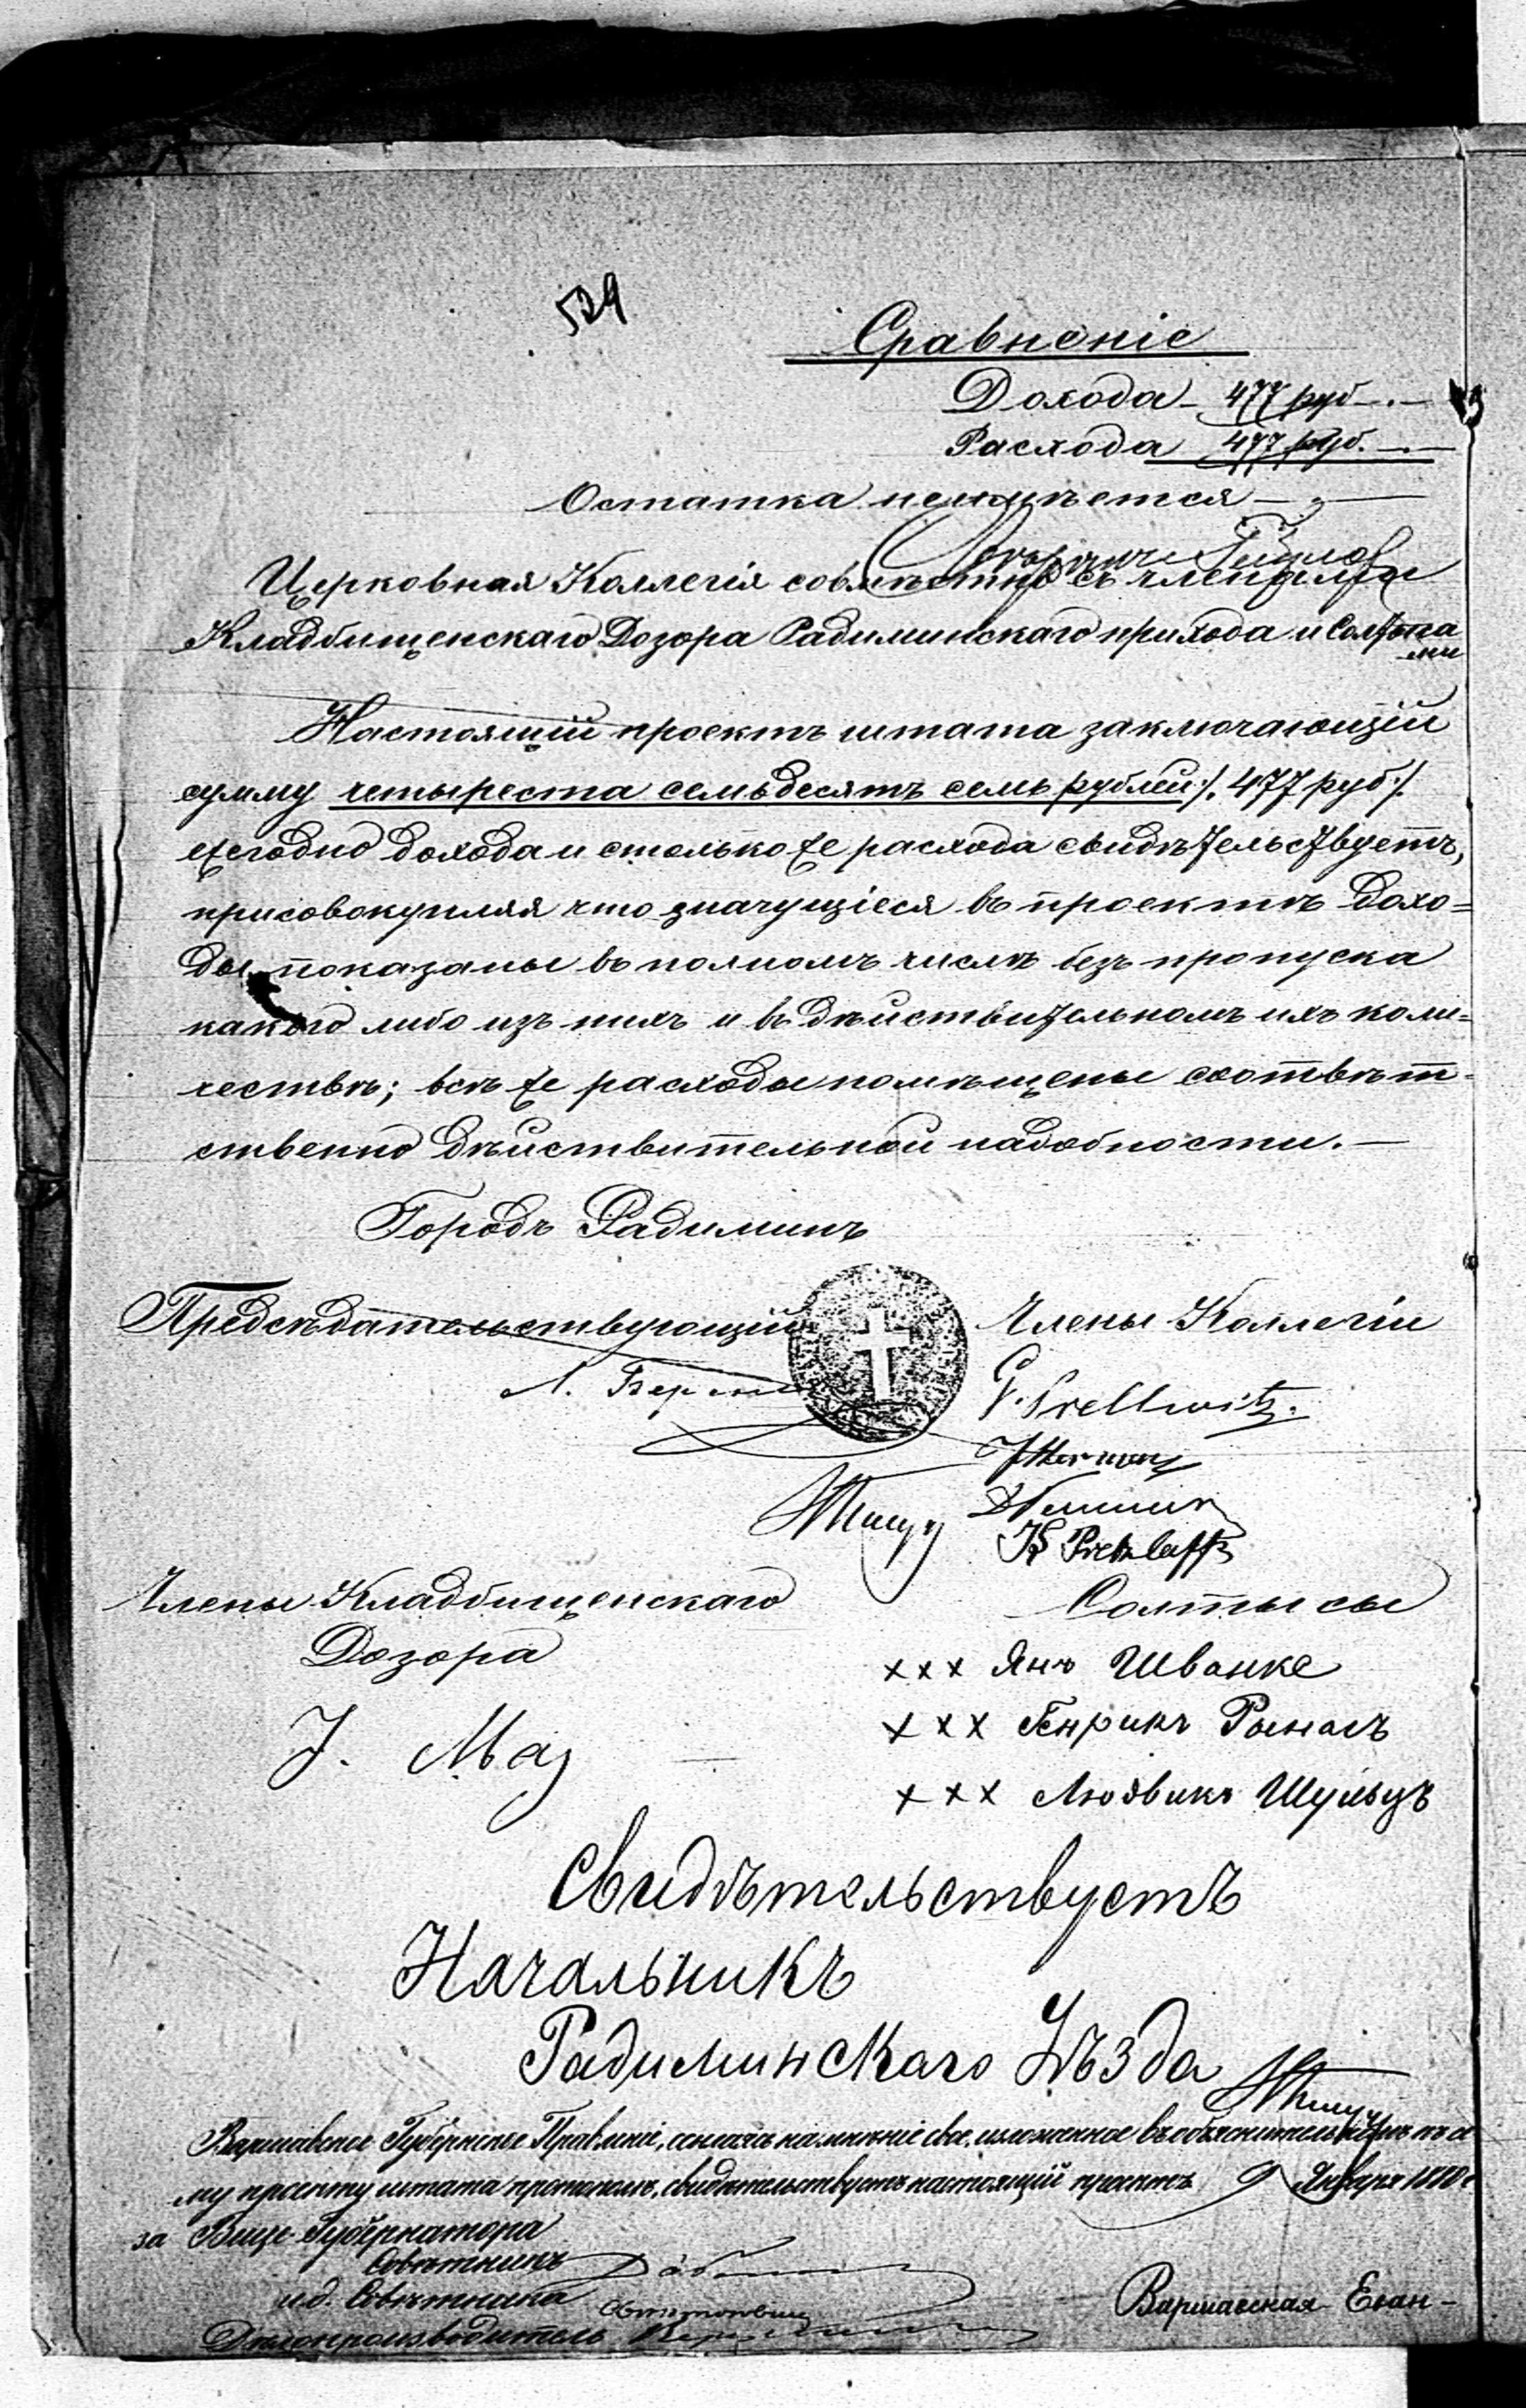 529
Сравненіе
Дохода - 477 руб -.-
Расхода 477 руб. -.-
Остатка неимѣется -
Церковная Коллегія совмѣстно съ членами
Кладбищенскаго Дозора Радиминскаго прихода и Солтыса
ми
Настоящій проектъ штата заключающій
сумму четыреста семьдесятъ семь рублей ./. 477 руб ./.
ежегодно дохода и столько же расхода свидѣтельствуетъ,
присовокупляя что значущіеся въ проектѣ дохо=
ды показаны въ полномъ числѣ безъ пропуска
какого либо изъ нихъ и въ дѣйствительномъ ихъ коли=
чествѣ; всѣ же расходы помѣщены соотвѣт-
ственно дѣйствительной надобности. -
Городъ Радиминъ
Предсѣдательствующій
Члены Коллегіи
Л.
P. Prellwitz.
J Herman
K Pretzlaff
Члены Кладбищенскаго
Дозора
Солтысы
J. May
xxx Янъ Шванке
xxx Генрикъ
xxx Людвикъ Шульцъ
Свидѣтельствуетъ
Начальникъ
Радиминскаго Уѣзда
Варшавское Губернское Правленіе, ссылаясь на мнѣніе свое, изложенное въ объяснительномъ къ се
му проекту штата протоколѣ, свидѣтельствуетъ настоящій проектъ 9 Января 1880 г
за Вице Губернатора
Совѣтникъ
и.д. Совѣтника
Дѣлопроизводитель
Варшавская Еван-